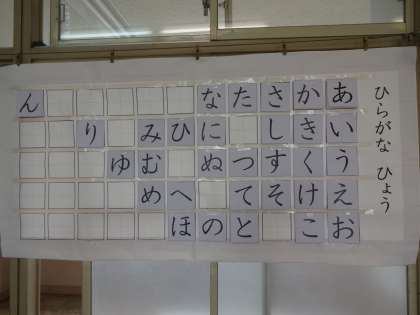 ひらがな ひょう
あいうえお
かきくけこ
さしすそ
たつてと
なにぬの
ひへほ
みむめ
ゆ
り
ん